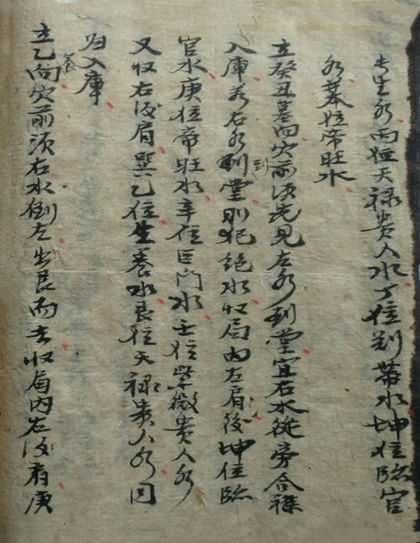 生水丙位天禄貴人水丁位冠帶水坤位臨官
水庚位帝旺水
立癸丑墓向穴前須先見左水到堂宜右水從旁合襟
入庫若右水到堂則犯絶水收局内左肩後坤位臨
官水庚位帝旺水辛位巨門水壬位紫微貴人水
又收右後肩巽乙位生養水艮位天禄貴人水同
歸入庫
立乙向穴前須右水倒左出艮而去收局内左後肩庚
養